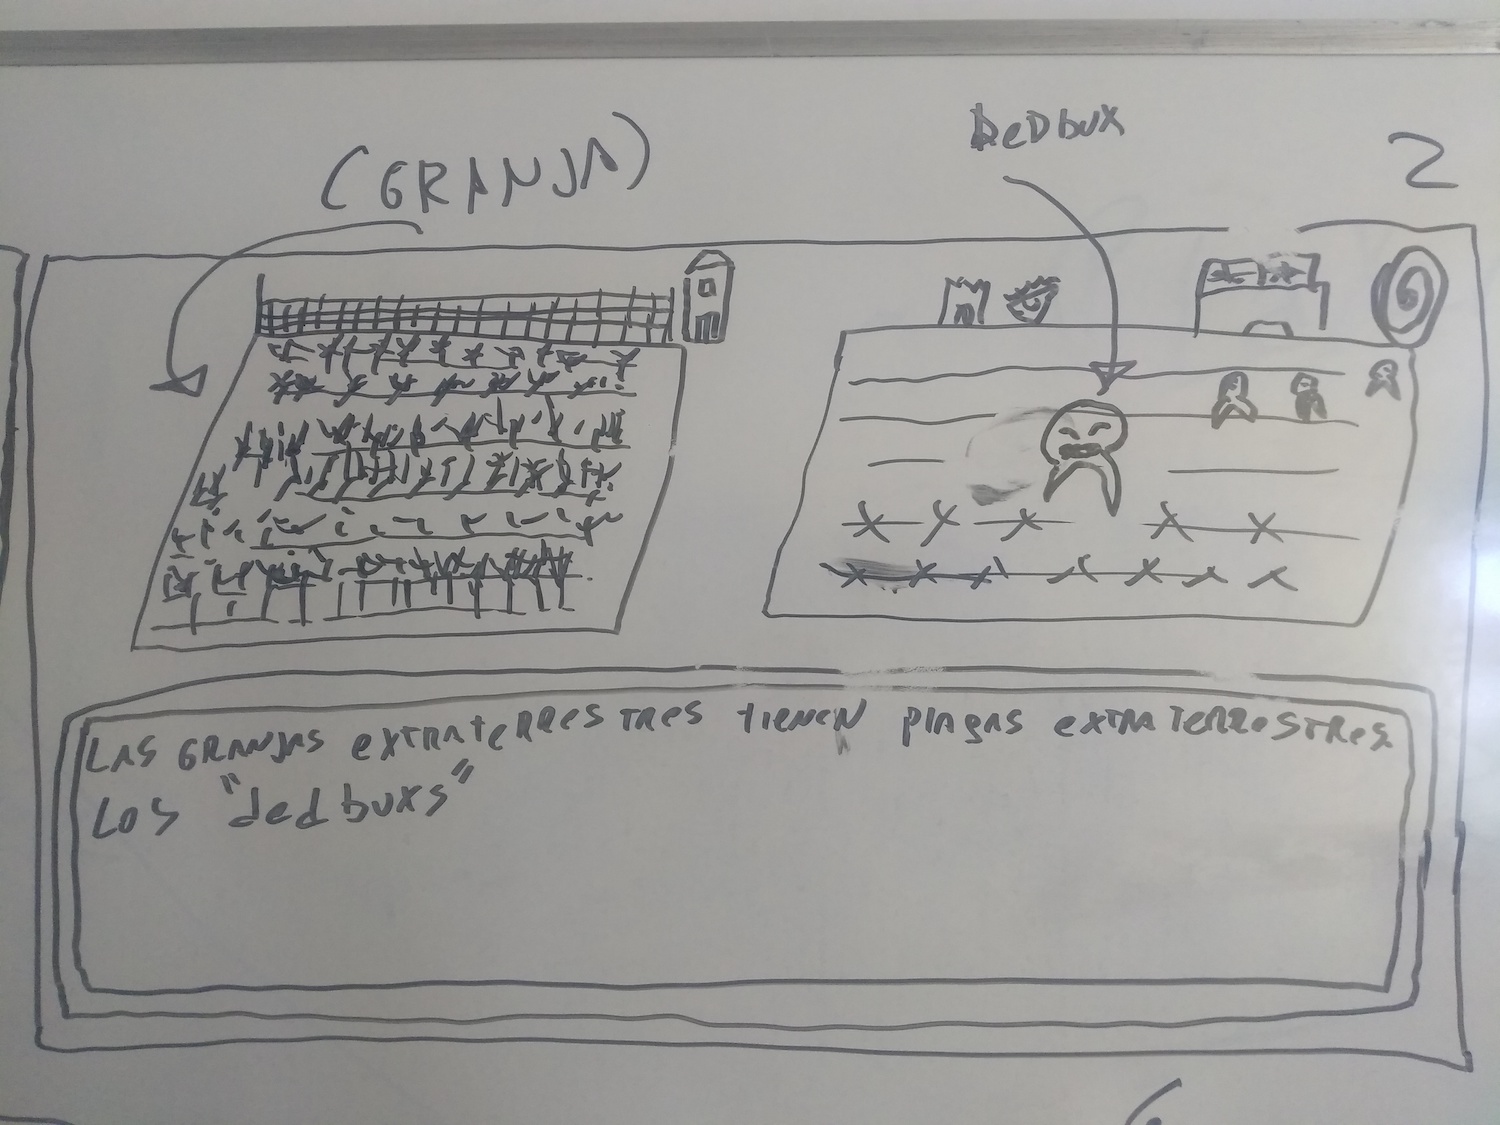 (GRANJA)
DeDbux
2
6
LAS GRANJAS extRAteRRestRes tienen plagas extRATeRRestRes.
Los "dedbuxs"